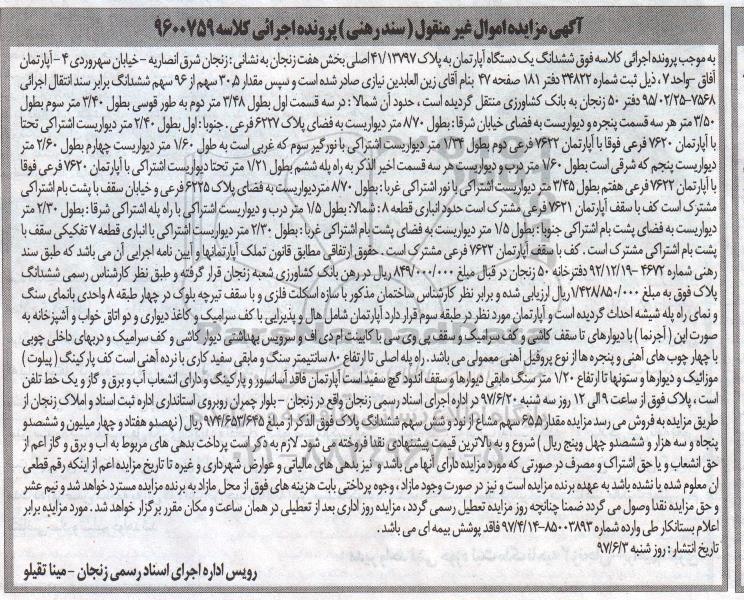 آگهی مزایده اموال غیر منقول ( سند رهنی ) پرونده اجرائی کلاسه ۹۶۰۰۷۵۹
به موجب پرونده اجرائی کلاسه فوق ششدانگ یک دستگاه آپارتمان به پلاک ۴۱/۱۳۷۹۷ اصلی بخش هفت زنجان به نشانی : زنجان شرق انصاریه - خیابان سهروردی ۴ - آپارتمان
آفاق - واحد ۷ ، ذیل ثبت شماره ۳۴۸۲۲ دفتر ۱۸۱ صفحه ۴۷ بنام آقای زین العابدین نیازی صادر شده است و سپس مقدار ۳۰٫۵ سهم از ۹۶ سهم ششدانگ برابر سند انتقال اجرائی
۷۵۶۸-۹۵/۰۲/۲۵ دفتر ۵۰ زنجان به بانک کشاورزی منتقل گردیده است ، حدود آن شمالا : در سه قسمت اول بطول ۳/۴۸ متر دوم به طور قوسی بطول ۳/۴۰ متر سوم بطول
۳/۵۰ متر هر سه قسمت پنجره و دیواریست به فضای خیابان شرقا : بطول ۸/۷۰ متر دیواریست به فضای پلاک ۶۲۲۷ فرعی . جنوبا : اول بطول ۲/۴۰ متر دیواریست اشتراکی تحتا
با آپارتمان ۷۶۲۰ فرعی فوقا با آپارتمان ۷۶۲۲ فرعی دوم بطول ۱/۳۴ متر دیواریست اشتراکی با نورگیر سوم که غربی است به طول ۱/۶۰ متر دیواریست چهارم بطول ۲/۶۰ متر
دیواریست پنجم که شرقی است بطول ۱/۶۰ متر درب و دیواریست هر سه قسمت اخیر الذکر به راه پله ششم بطول ۱/۲۱ متر تحتا دیواریست اشتراکی با آپارتمان ۷۶۲۰ فرعی فوقا
با آپارتمان ۷۶۲۲ فرعی هفتم بطول ۳/۴۵ متر دیواریست اشتراکی با نور اشتراکی غربا : بطول ۸/۷۰ متر دیواریست به فضای پلاک ۶۲۲۵ فرعی و خیابان سقف با پشت بام اشتراکی
مشترک است کف با سقف آپارتمان ۷۶۲۱ فرعی مشترک است حدود انباری قطعه ۸ : شمالا: بطول ۱/۵ متر درب و دیواریست اشتراکی با راه پله اشتراکی شرقا : بطول ۲/۳۰ متر
دیواریست به فضای پشت بام اشتراکی جنوبا : بطول ۱/۵ متر دیواریست به فضای پشت بام اشتراکی غربا : بطول ۲/۳۰ متر دیواریست اشتراکی با انباری قطعه ۷ تفکیکی سقف با
پشت بام اشتراکی مشترک است . کف با سقف آپارتمان ۷۶۲۲ فرعی مشترک است . حقوق ارتفاقی مطابق قانون تملک آپارتمانها و آیین نامه اجرایی آن می باشد که طبق سند
رهنی شماره ۴۶۷۲ - ۹۲/۱۲/۱۹ دفترخانه ۵۰ زنجان در قبال مبلغ ۸۴۹/۰۰۰/۰۰۰ ریال در رهن بانک کشاورزی شعبه زنجان قرار گرفته و طبق نظر کارشناس رسمی ششدانگ
پلاک فوق به مبلغ ۱/۴۲۸/۸۵۰/۰۰۰ ریال ارزیابی شده و برابر نظر کارشناس ساختمان مذکور با سازه اسکلت فلزی و با سقف تیرچه بلوک در چهار طبقه ۸ واحدی بانمای سنگ
و نمای راه پله شیشه احداث گردیده است و آپارتمان مورد نظر در طبقه سوم قرار دارد آپارتمان شامل هال و پذیرایی با کف سرامیک و کاغذ دیواری و دو اتاق خواب و آشپزخانه به
صورت اپن ( آجرنما ) با دیوارهای تا سقف کاشی و کف سرامیک و سقف پی وی سی با کابینت ام دی اف و سرویس بهداشتی دیوار کاشی و کف سرامیک و دربهای داخلی چوبی
با چهار چوب های آهنی و پنجره ها از نوع پروفیل آهنی معمولی می باشد . راه پله اصلی تا ارتفاع ۸۰ سانتیمتر سنگ و مابقی سفید کاری با نرده آهنی است کف پارکینگ ( پیلوت )
موزائیک و دیوارها و ستونها تا ارتفاع ۱/۲۰ متر سنگ مابقی دیوارها و سقف اندود گچ سفید است آپارتمان فاقد آسانسور و پارکینگ و دارای انشعاب آب و برق و گاز و یک خط تلفن
است ، پلاک فوق از ساعت ۹ الی ۱۲ روز سه شنبه ۹۷/۶/۲۰ در اداره اجرای اسناد رسمی زنجان واقع در زنجان - بلوار چمران روبروی استانداری اداره ثبت اسناد و املاک زنجان از
طریق مزایده به فروش می رسد مزایده مقدار ۶۵٫۵ سهم مشاع از نود و شش سهم ششدانگ پلاک فوق الذکر از مبلغ ۹۷۴/۶۵۳/۶۴۵ ریال ( نهصدو هفتاد و چهار میلیون و ششصدو
پنجاه و سه هزار و ششصدو چهل وپنج ریال ) شروع و به بالاترین قیمت پیشنهادی نقدا فروخته می شود. لازم به ذکر است پرداخت بدهی های مربوط به آب و برق و گاز اعم از
حق انشعاب و یا حق اشتراک و مصرف در صورتی که مورد مزایده دارای آنها می باشد و نیز بدهی های مالیاتی و عوارض شهرداری و غیره تا تاریخ مزایده اعم از اینکه رقم قطعی
ان معلوم شده یا نشده باشد به عهده برنده مزایده است و نیز در صورت وجود مازاد ، وجوه پرداختی بابت هزینه های فوق از محل مازاد به برنده مزایده مسترد خواهد شد و نیم عشر
و حق مزایده نقدا وصول می گردد ضمنا چنانچه روز مزایده تعطیل رسمی گردد ، مزایده روز اداری بعد از تعطیلی در همان ساعت و مکان مقرر برگزار خواهد شد . مورد مزایده برابر
اعلام بستانکار طی وارده شماره ۸۵۰۰۳۸۹۳-۹۷/۴/۱۴ فاقد پوشش بیمه ای می باشد .
تاریخ انتشار : روز شنبه ۹۷/۶/۳
رویس اداره اجرای اسناد رسمی زنجان - مینا تقیلو